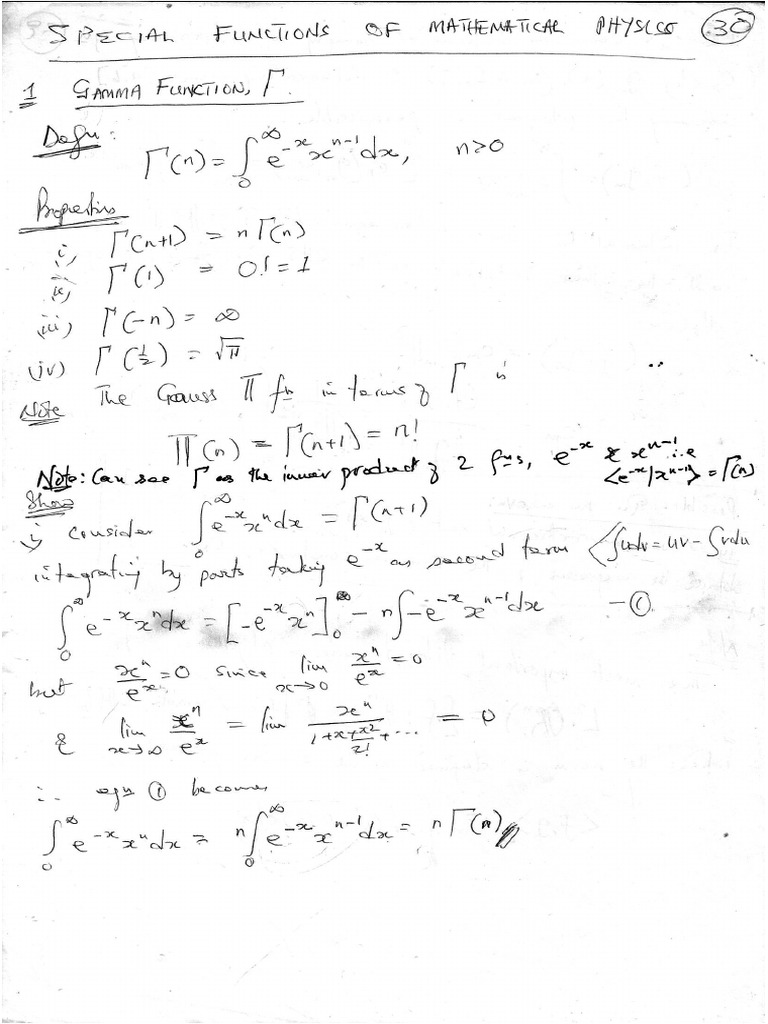 SPECIAL FUNCTIONS OF MATHEMATICAL PHYSICS 30
1 GAMMA FUNCTION, Γ.
Defn:
Γ(n) = ∫₀^∞ e^{-x} x^{n-1} dx, n>0
Properties
i, Γ(n+1) = nΓ(n)
ii, Γ(1) = 0! = 1
iii) Γ(-n) = ∞
(iv) Γ(½) = √π
Note The Gauss Π fn in terms of Γ is
Π(n) = Γ(n+1) = n!
Note: Can see Γ as the inner product of 2 fns, e^{-x} & x^{n-1} i.e
<e^{-x}/x^{n-1}> = Γ(n)
Show
i, consider ∫₀^∞ e^{-x} x^n dx = Γ(n+1)
integrating by parts taking e^{-x} as second term <∫udv = uv - ∫vdu
∫₀^∞ e^{-x} x^n dx = [-e^{-x} x^n]₀^∞ - n∫-e^{-x} x^{n-1} dx - ①
but x^n/e^x = 0 since lim_{x→0} x^n/e^x = 0
& lim_{x→∞} x^n/e^x = lim x^n/(1+x+x²/2!+...) = 0
∴ eqn ① becomes
∫₀^∞ e^{-x} x^n dx = n∫₀^∞ e^{-x} x^{n-1} dx = nΓ(n)